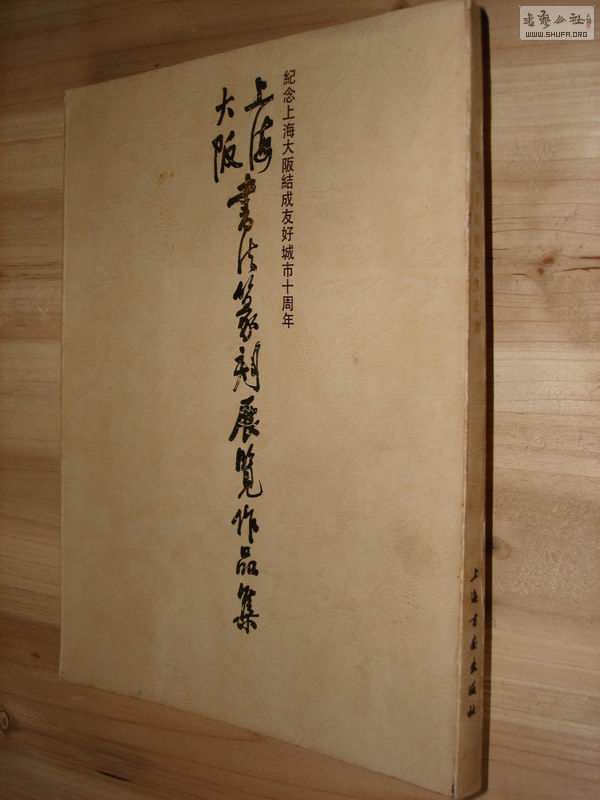 紀念上海大阪結成友好城市十周年
上海
大阪
書法篆刻展覽作品集
上海書畫出版社
書藝公社
WWW.SHUFA.ORG